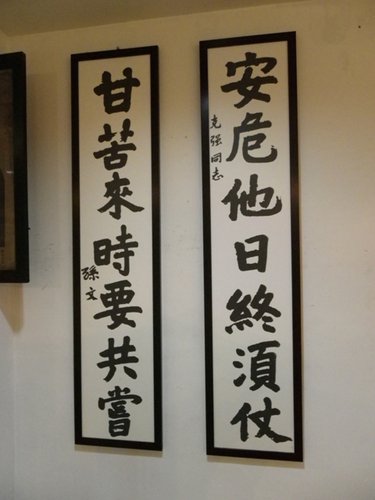 安危他日終須仗
克强同志
甘苦來時要共嘗
孫文